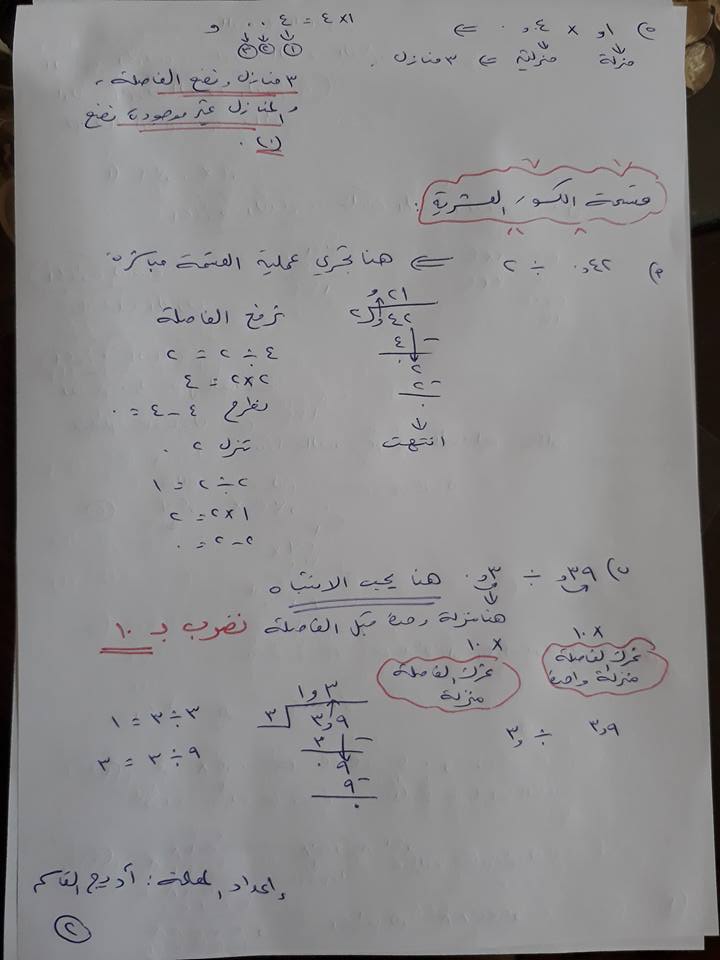 ٥) ١و × ٤و٠ ⇐ ١×٤ = ٤٠٠و
منزلة منزلتين ⇐ ٣ منازل .
① ② ③
٣ منازل ونضع الفاصلة ،
والمنازل غير موجودة نضع
(٠) .
قسمة الكسور العشرية :
٢) ٤٢و٠ ÷ ٢ ⇐ هنا نجري عملية القسمة مباشرة
و٢١
٢ و٤٢
٤ –
٠٢
٢ –
٠
انتهت
نرفع الفاصلة
٤ ÷ ٢ = ٢
٢×٢ = ٤
نطرح ٤ – ٤ = ٠
ننزل ٢ .
٢ ÷ ٢ = ١
١×٢ = ٢
٢ – ٢ = ٠
ب) ٣٩و ÷ ٣و٠ هنا يجب الانتباه
هنا منزلة وحدة قبل الفاصلة نضرب بـ ١٠
× ١٠ × ١٠
نحرك الفاصلة منزلة واحدة
نحرك الفاصلة منزلة
٣,٩ ÷ ٣,
١و٣
٣ ٣,٩
٣ –
٠٩
٩ –
٠
٣ ÷ ٣ = ١
٩ ÷ ٣ = ٣
إعداد المعلمة : أريج القاسم
٢